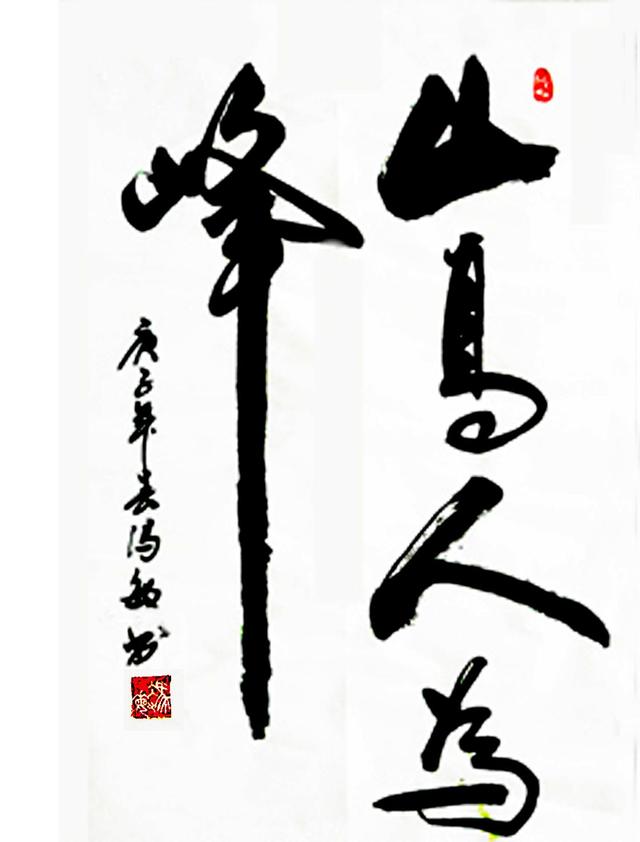 山高人为
峰
庚子年春冯敏书